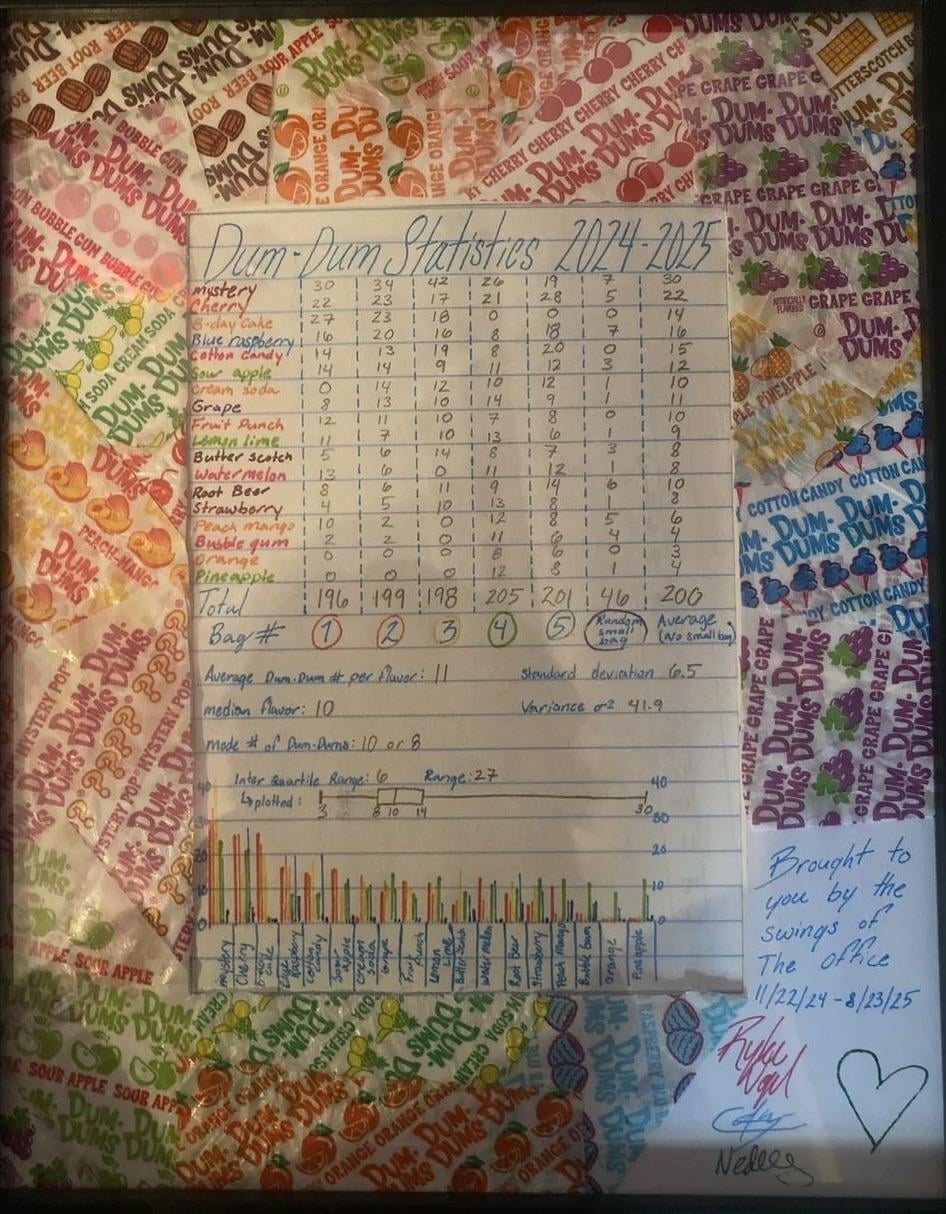 Dum-Dum Statistics 2024-2025
Mystery 30 34 42 26 19 7 30
Cherry 22 23 17 21 28 5 22
B-day Cake 27 23 18 0 0 0 14
Blue raspberry 16 20 16 8 18 7 16
Cotton candy 14 13 19 8 20 0 15
Sour apple 14 14 9 11 12 3 12
Cream soda 0 14 12 10 12 1 10
Grape 8 13 10 14 9 1 11
Fruit Punch 12 11 10 7 8 0 10
Lemon lime 11 7 10 13 6 1 9
Butter scotch 5 6 14 8 7 3 8
Watermelon 13 6 0 11 12 1 8
Root Beer 8 6 11 9 14 6 10
Strawberry 4 5 10 13 8 1 8
Peach mango 10 2 0 12 8 5 6
Bubble gum 2 2 0 11 6 4 4
Orange 0 0 0 8 6 0 3
Pineapple 0 0 0 12 8 1 4
Total 196 199 198 205 201 46 200
Bag # 1 2 3 4 5 Random small bag Average (No small bag)
Average Dum-Dum # per flavor: 11 Standard deviation 6.5
median flavor: 10 Variance σ² 41.9
mode # of Dum-Dums: 10 or 8
Inter Quartile Range: 6 Range: 27
↳ plotted: 3 8 10 14 30
40 40
30 30
20 20
10 10
0 0
Mystery Cherry B-day Cake Blue Raspberry Cotton candy Sour apple Cream soda Grape Fruit Punch Lemon lime Butter Scotch Water melon Root Beer Strawberry Peach Mango Bubble Gum Orange Pineapple
Brought to
you by the
swings of
The office
11/22/24 - 8/23/25
DUM-DUMS
ROOT BEER
SOUR APPLE
ORANGE
CHERRY CHERRY CHERRY
GRAPE GRAPE
BUTTERSCOTCH
BUBBLE GUM
CREAM SODA
ARTIFICIALLY FLAVORED
PINEAPPLE
PEACH-MANGO
COTTON CANDY
MYSTERY POP
SOUR APPLE SOUR APPLE
ORANGE ORANGE ORANGE